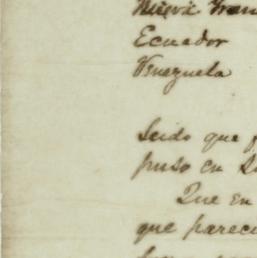 Nueva Gran
Ecuador
Venezuela
que
puso en
Que en
que parec